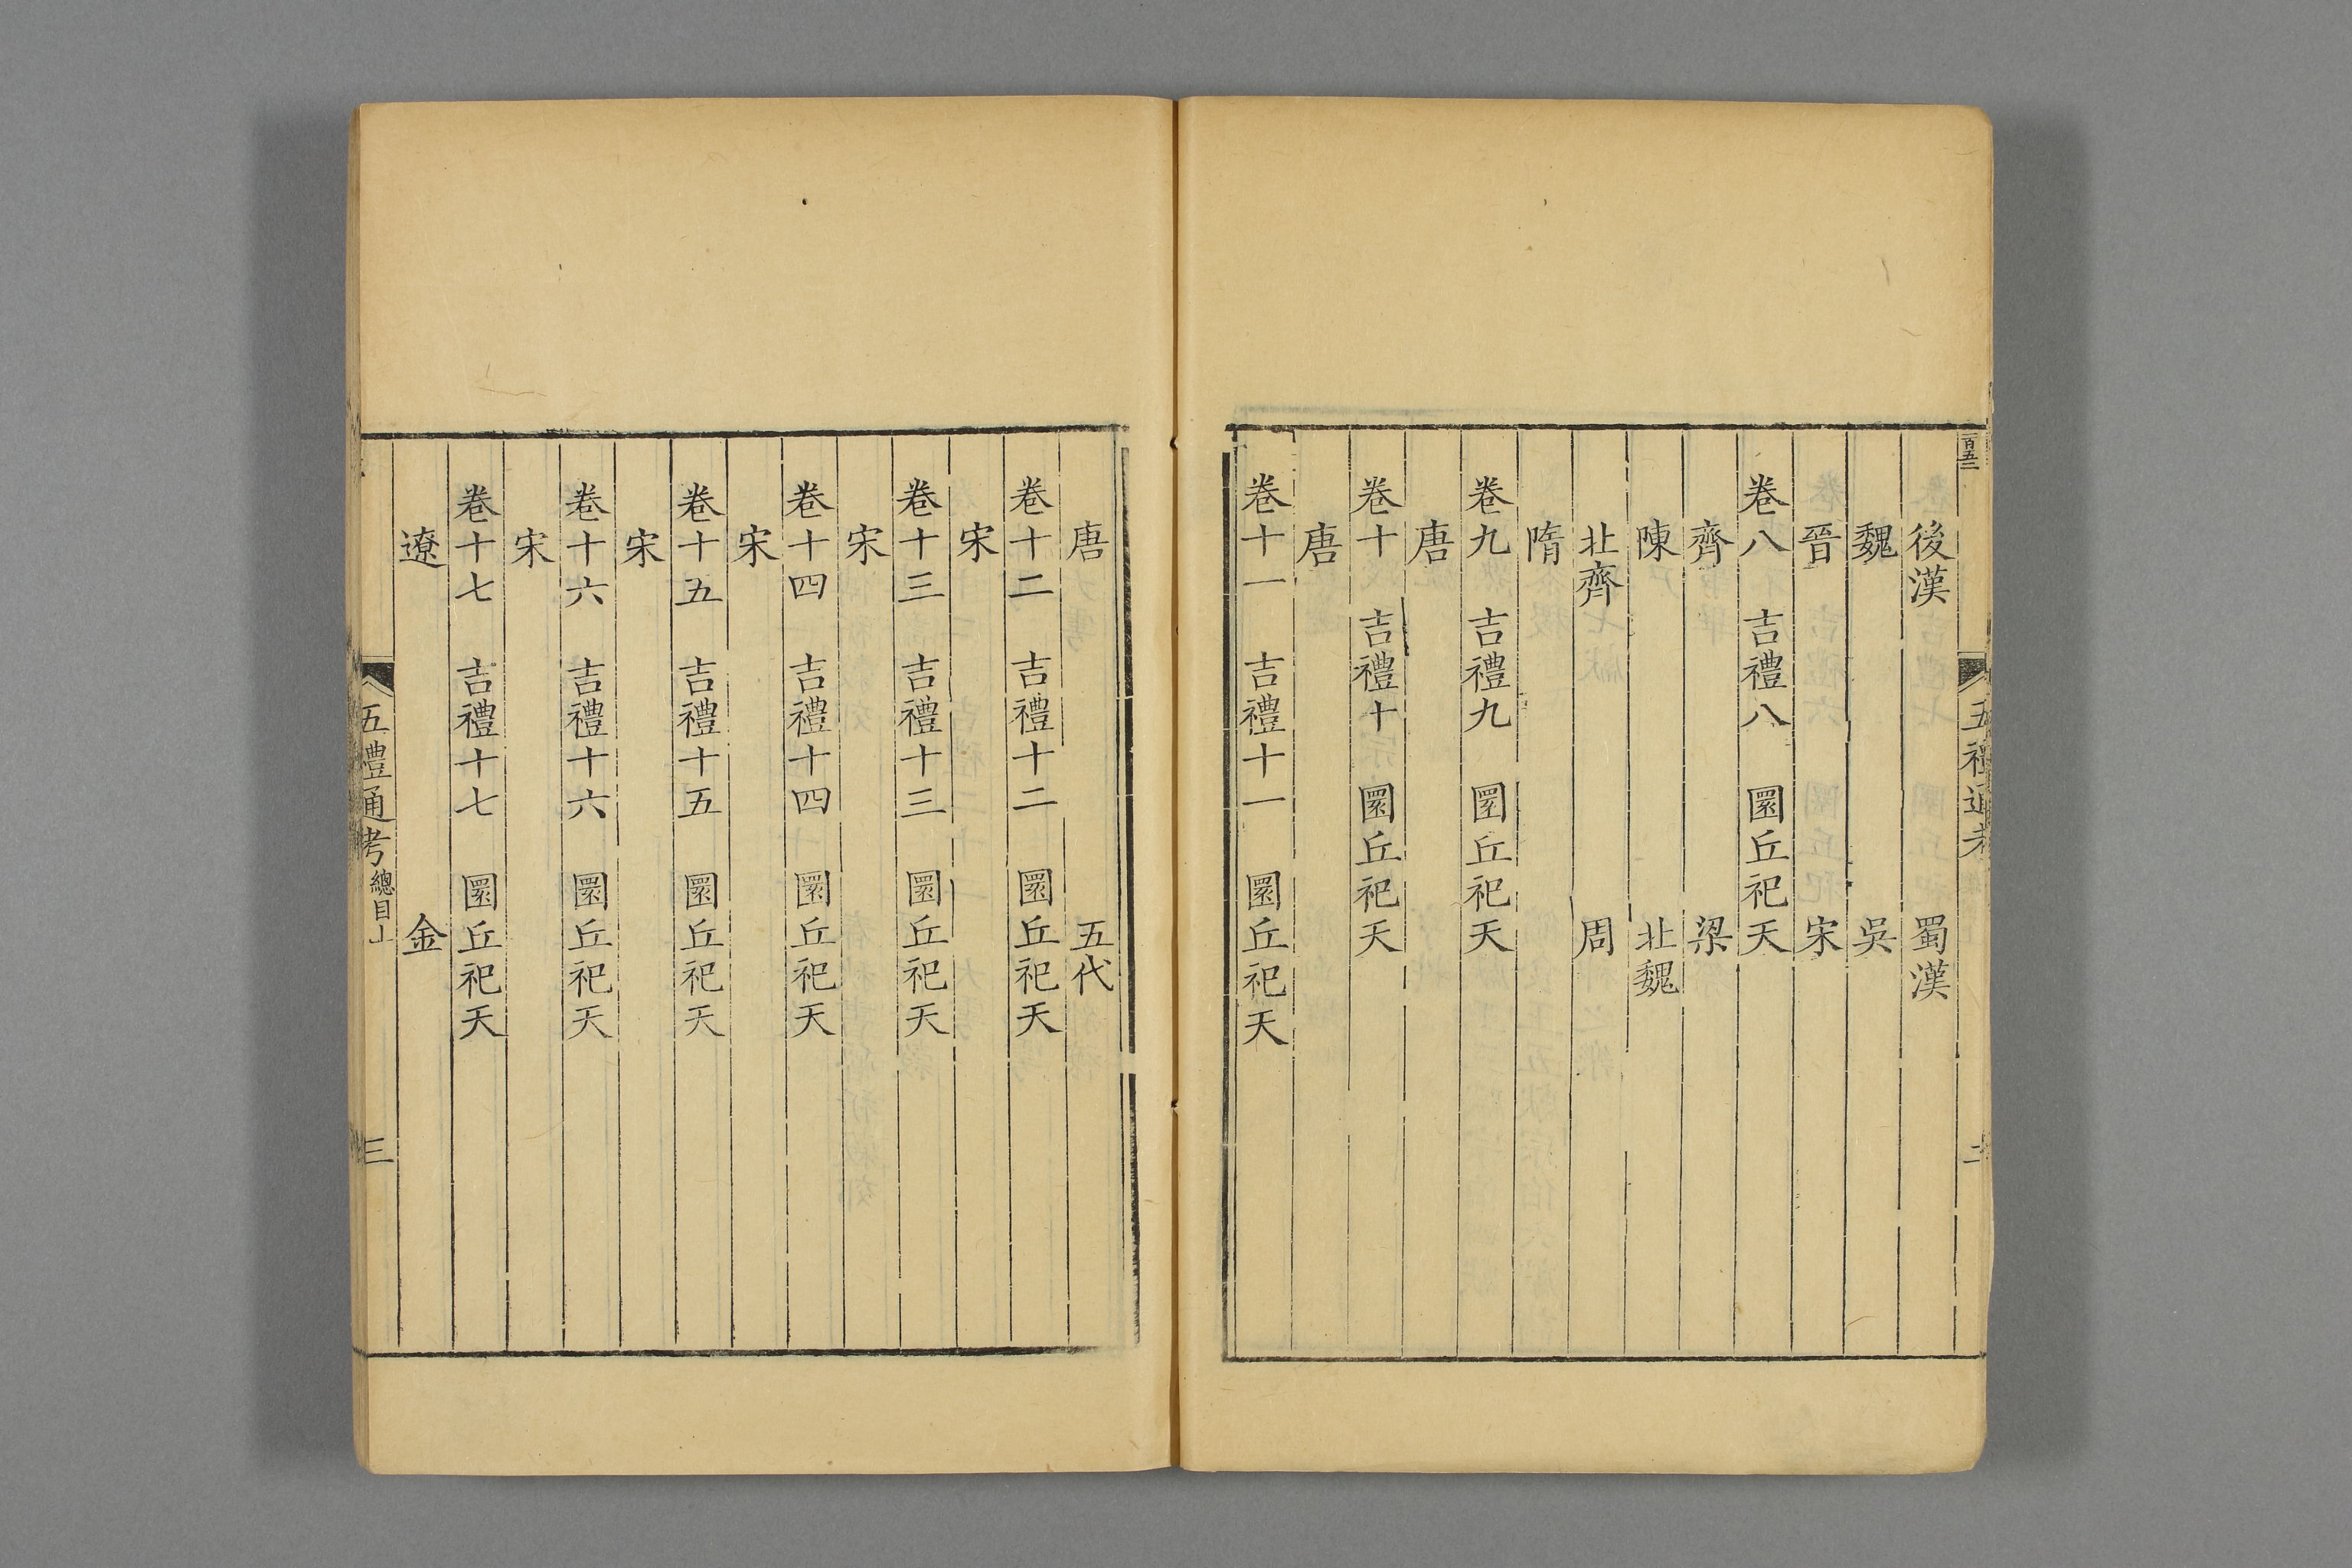 後漢 蜀漢
魏 吳
晉 宋
卷八 吉禮八 圜丘祀天
齊 梁
陳 北魏
北齊 周
隋
卷九 吉禮九 圜丘祀天
唐
卷十 吉禮十 圜丘祀天
唐
卷十一 吉禮十一 圜丘祀天
唐 五代
卷十二 吉禮十二 圜丘祀天
宋
卷十三 吉禮十三 圜丘祀天
宋
卷十四 吉禮十四 圜丘祀天
宋
卷十五 吉禮十五 圜丘祀天
宋
卷十六 吉禮十六 圜丘祀天
宋
卷十七 吉禮十七 圜丘祀天
遼 金
五禮通考 總目上 三